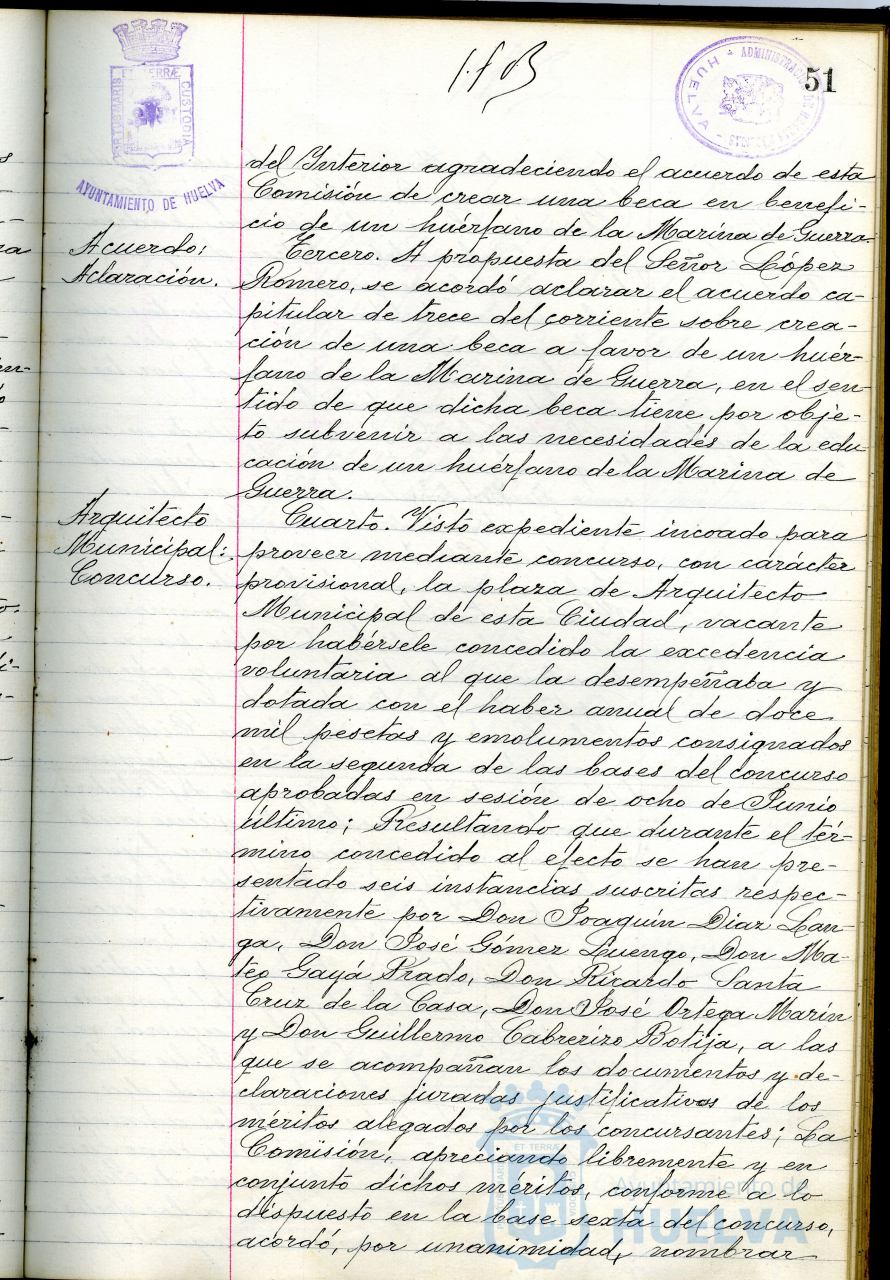 51
ET TERRÆ
PORTUS MARIS
CUSTODIA
AYUNTAMIENTO DE HUELVA
HUELVA
del Interior agradeciendo el acuerdo de esta
Comisión de crear una beca en benefi-
cio de un huérfano de la Marina de Guerra.
Acuerdo;
Aclaración.
Tercero. A propuesta del Señor López
Romero, se acordó aclarar el acuerdo ca-
pitular de trece del corriente sobre crea-
ción de una beca a favor de un huér-
fano de la Marina de Guerra, en el sen-
tido de que dicha beca tiene por obje-
to subvenir a las necesidades de la edu-
cación de un huérfano de la Marina de
Guerra.
Arquitecto
Municipal:
Concurso.
Cuarto. Visto expediente incoado para
proveer mediante concurso, con carácter
provisional, la plaza de Arquitecto
Municipal de esta Ciudad, vacante
por habérsele concedido la excedencia
voluntaria al que la desempeñaba y
dotada con el haber anual de doce
mil pesetas y emolumentos consignados
en la segunda de las bases del concurso
aprobadas en sesión de ocho de Junio
último; Resultando que durante el tér-
mino concedido al efecto se han pre-
sentado seis instancias suscritas respec-
tivamente por Don Joaquín Diaz Lan-
ga, Don José Gómez Luengo, Don Ma-
teo Gayá Prado, Don Ricardo Santa
Cruz de la Casa, Don José Ortega Marín
y Don Guillermo Cabrerizo Botija, a las
que se acompañan los documentos y de-
claraciones juradas justificativos de los
méritos alegados por los concursantes; La
Comisión, apreciando libremente y en
conjunto dichos méritos, conforme a lo
dispuesto en la base sexta del concurso,
acordó, por unanimidad, nombrar
Ayuntamiento de
HUELVA